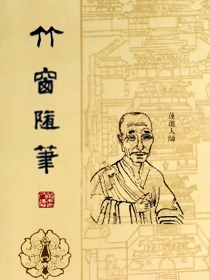 竹窗随筆
蓮池大師